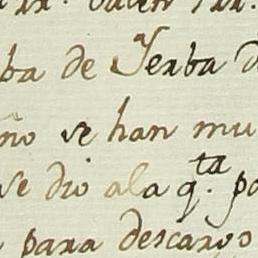 ba de Yerba d
ño se han mu
se dio ala q.ta po
para descargo